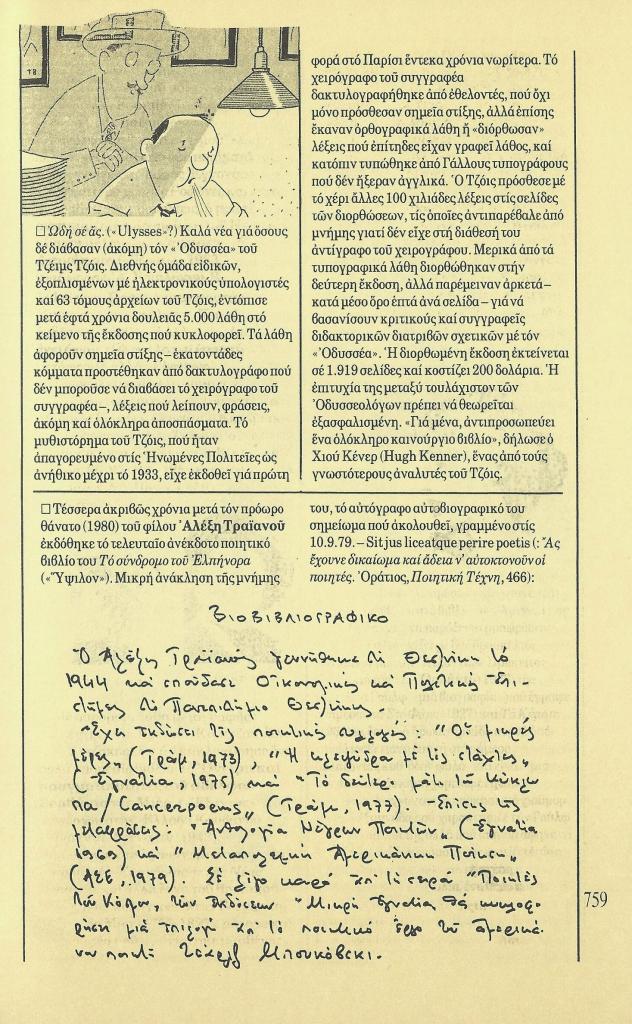 □ Ὠδή σέ ἄς. («Ulysses»?) Καλά νέα γιά ὅσους
δέ διάβασαν (ἀκόμη) τόν «Ὀδυσσέα» τοῦ
Τζέιμς Τζόις. Διεθνής ὁμάδα εἰδικῶν,
ἐξοπλισμένων μέ ἠλεκτρονικούς ὑπολογιστές
καί 63 τόμους ἀρχείων τοῦ Τζόις, ἐντόπισε
μετά ἑφτά χρόνια δουλειᾶς 5.000 λάθη στό
κείμενο τῆς ἔκδοσης πού κυκλοφορεῖ. Τά λάθη
ἀφοροῦν σημεῖα στίξης – ἑκατοντάδες
κόμματα προστέθηκαν ἀπό δακτυλογράφο πού
δέν μποροῦσε νά διαβάσει τό χειρόγραφο τοῦ
συγγραφέα –, λέξεις πού λείπουν, φράσεις,
ἀκόμη καί ὁλόκληρα ἀποσπάσματα. Τό
μυθιστόρημα τοῦ Τζόις, πού ἦταν
ἀπαγορευμένο στίς Ἡνωμένες Πολιτεῖες ὡς
ἀνήθικο μέχρι τό 1933, εἶχε ἐκδοθεῖ γιά πρώτη
φορά στό Παρίσι ἕντεκα χρόνια νωρίτερα. Τό
χειρόγραφο τοῦ συγγραφέα
δακτυλογραφήθηκε ἀπό ἐθελοντές, πού ὄχι
μόνο πρόσθεσαν σημεῖα στίξης, ἀλλά ἐπίσης
ἔκαναν ὀρθογραφικά λάθη ἤ «διόρθωσαν»
λέξεις πού ἐπίτηδες εἶχαν γραφεῖ λάθος, καί
κατόπιν τυπώθηκε ἀπό Γάλλους τυπογράφους
πού δέν ἤξεραν ἀγγλικά. Ὁ Τζόις πρόσθεσε μέ
τό χέρι ἄλλες 100 χιλιάδες λέξεις στίς σελίδες
τῶν διορθώσεων, τίς ὁποῖες ἀντιπαρέβαλε ἀπό
μνήμης γιατί δέν εἶχε στή διάθεσή του
ἀντίγραφο τοῦ χειρογράφου. Μερικά ἀπό τά
τυπογραφικά λάθη διορθώθηκαν στήν
δεύτερη ἔκδοση, ἀλλά παρέμειναν ἀρκετά –
κατά μέσο ὅρο ἑπτά ἀνά σελίδα – γιά νά
βασανίσουν κριτικούς καί συγγραφεῖς
διδακτορικῶν διατριβῶν σχετικῶν μέ τόν
«Ὀδυσσέα». Ἡ διορθωμένη ἔκδοση ἐκτείνεται
σέ 1.919 σελίδες καί κοστίζει 200 δολάρια. Ἡ
ἐπιτυχία της μεταξύ τουλάχιστον τῶν
Ὀδυσσεολόγων πρέπει νά θεωρεῖται
ἐξασφαλισμένη. «Γιά μένα, ἀντιπροσωπεύει
ἕνα ὁλόκληρο καινούργιο βιβλίο», δήλωσε ὁ
Χιού Κένερ (Hugh Kenner), ἕνας ἀπό τούς
γνωστότερους ἀναλυτές τοῦ Τζόις.
□ Τέσσερα ἀκριβῶς χρόνια μετά τόν πρόωρο
θάνατο (1980) τοῦ φίλου Ἀλέξη Τραϊανοῦ
ἐκδόθηκε τό τελευταῖο ἀνέκδοτο ποιητικό
βιβλίο του Τό σύνδρομο τοῦ Ἐλπήνορα
(«Ὕψιλον»). Μικρή ἀνάκληση τῆς μνήμης
του, τό αὐτόγραφο αὐτοβιογραφικό του
σημείωμα πού ἀκολουθεῖ, γραμμένο στίς
10.9.79. – Sit jus liceatque perire poetis (: Ἄς
ἔχουνε δικαίωμα καί ἄδεια ν' αὐτοκτονοῦν οἱ
ποιητές. Ὁράτιος, Ποιητική Τέχνη, 466):
ΒΙΟΒΙΒΛΙΟΓΡΑΦΙΚΟ
Ὁ Ἀλέξης Τραϊανός γεννήθηκε στή Θεσ/νίκη τό
1944 καί σπούδασε Οἰκονομικές καί Πολιτικές Ἐπι-
στῆμες στό Πανεπιστήμιο Θεσ/νίκης.
Ἔχει ἐκδώσει τίς ποιητικές συλλογές: "Οἱ μικρές
μέρες" (Τράμ, 1973), "Ἡ κλεψύδρα μέ τίς στάχτες"
(Ἐγνατία, 1975) καί "Τό δεύτερο μάτι τοῦ Κύκλω
πα/Cancerpoems" (Τράμ, 1977). Ἐπίσης τίς
μεταφράσεις: "Ἀνθολογία Νέγρων Ποιητῶν" (Ἐγνατία
1969) καί "Μεταπολεμική Ἀμερικάνικη Ποίηση"
(ΑΣΕ, 1979). Σέ λίγο καιρό ἀπ' τή σειρά "Ποιητές
τοῦ Κόσμου" τῶν ἐκδόσεων "Μικρή Ἐγνατία" θά κυκλοφο-
ρήσει μιά ἐπιλογή ἀπ' τό ποιητικό ἔργο τοῦ ἀμερικά-
νου ποιητῆ Τσάρλς Μπουκόβσκι.
759